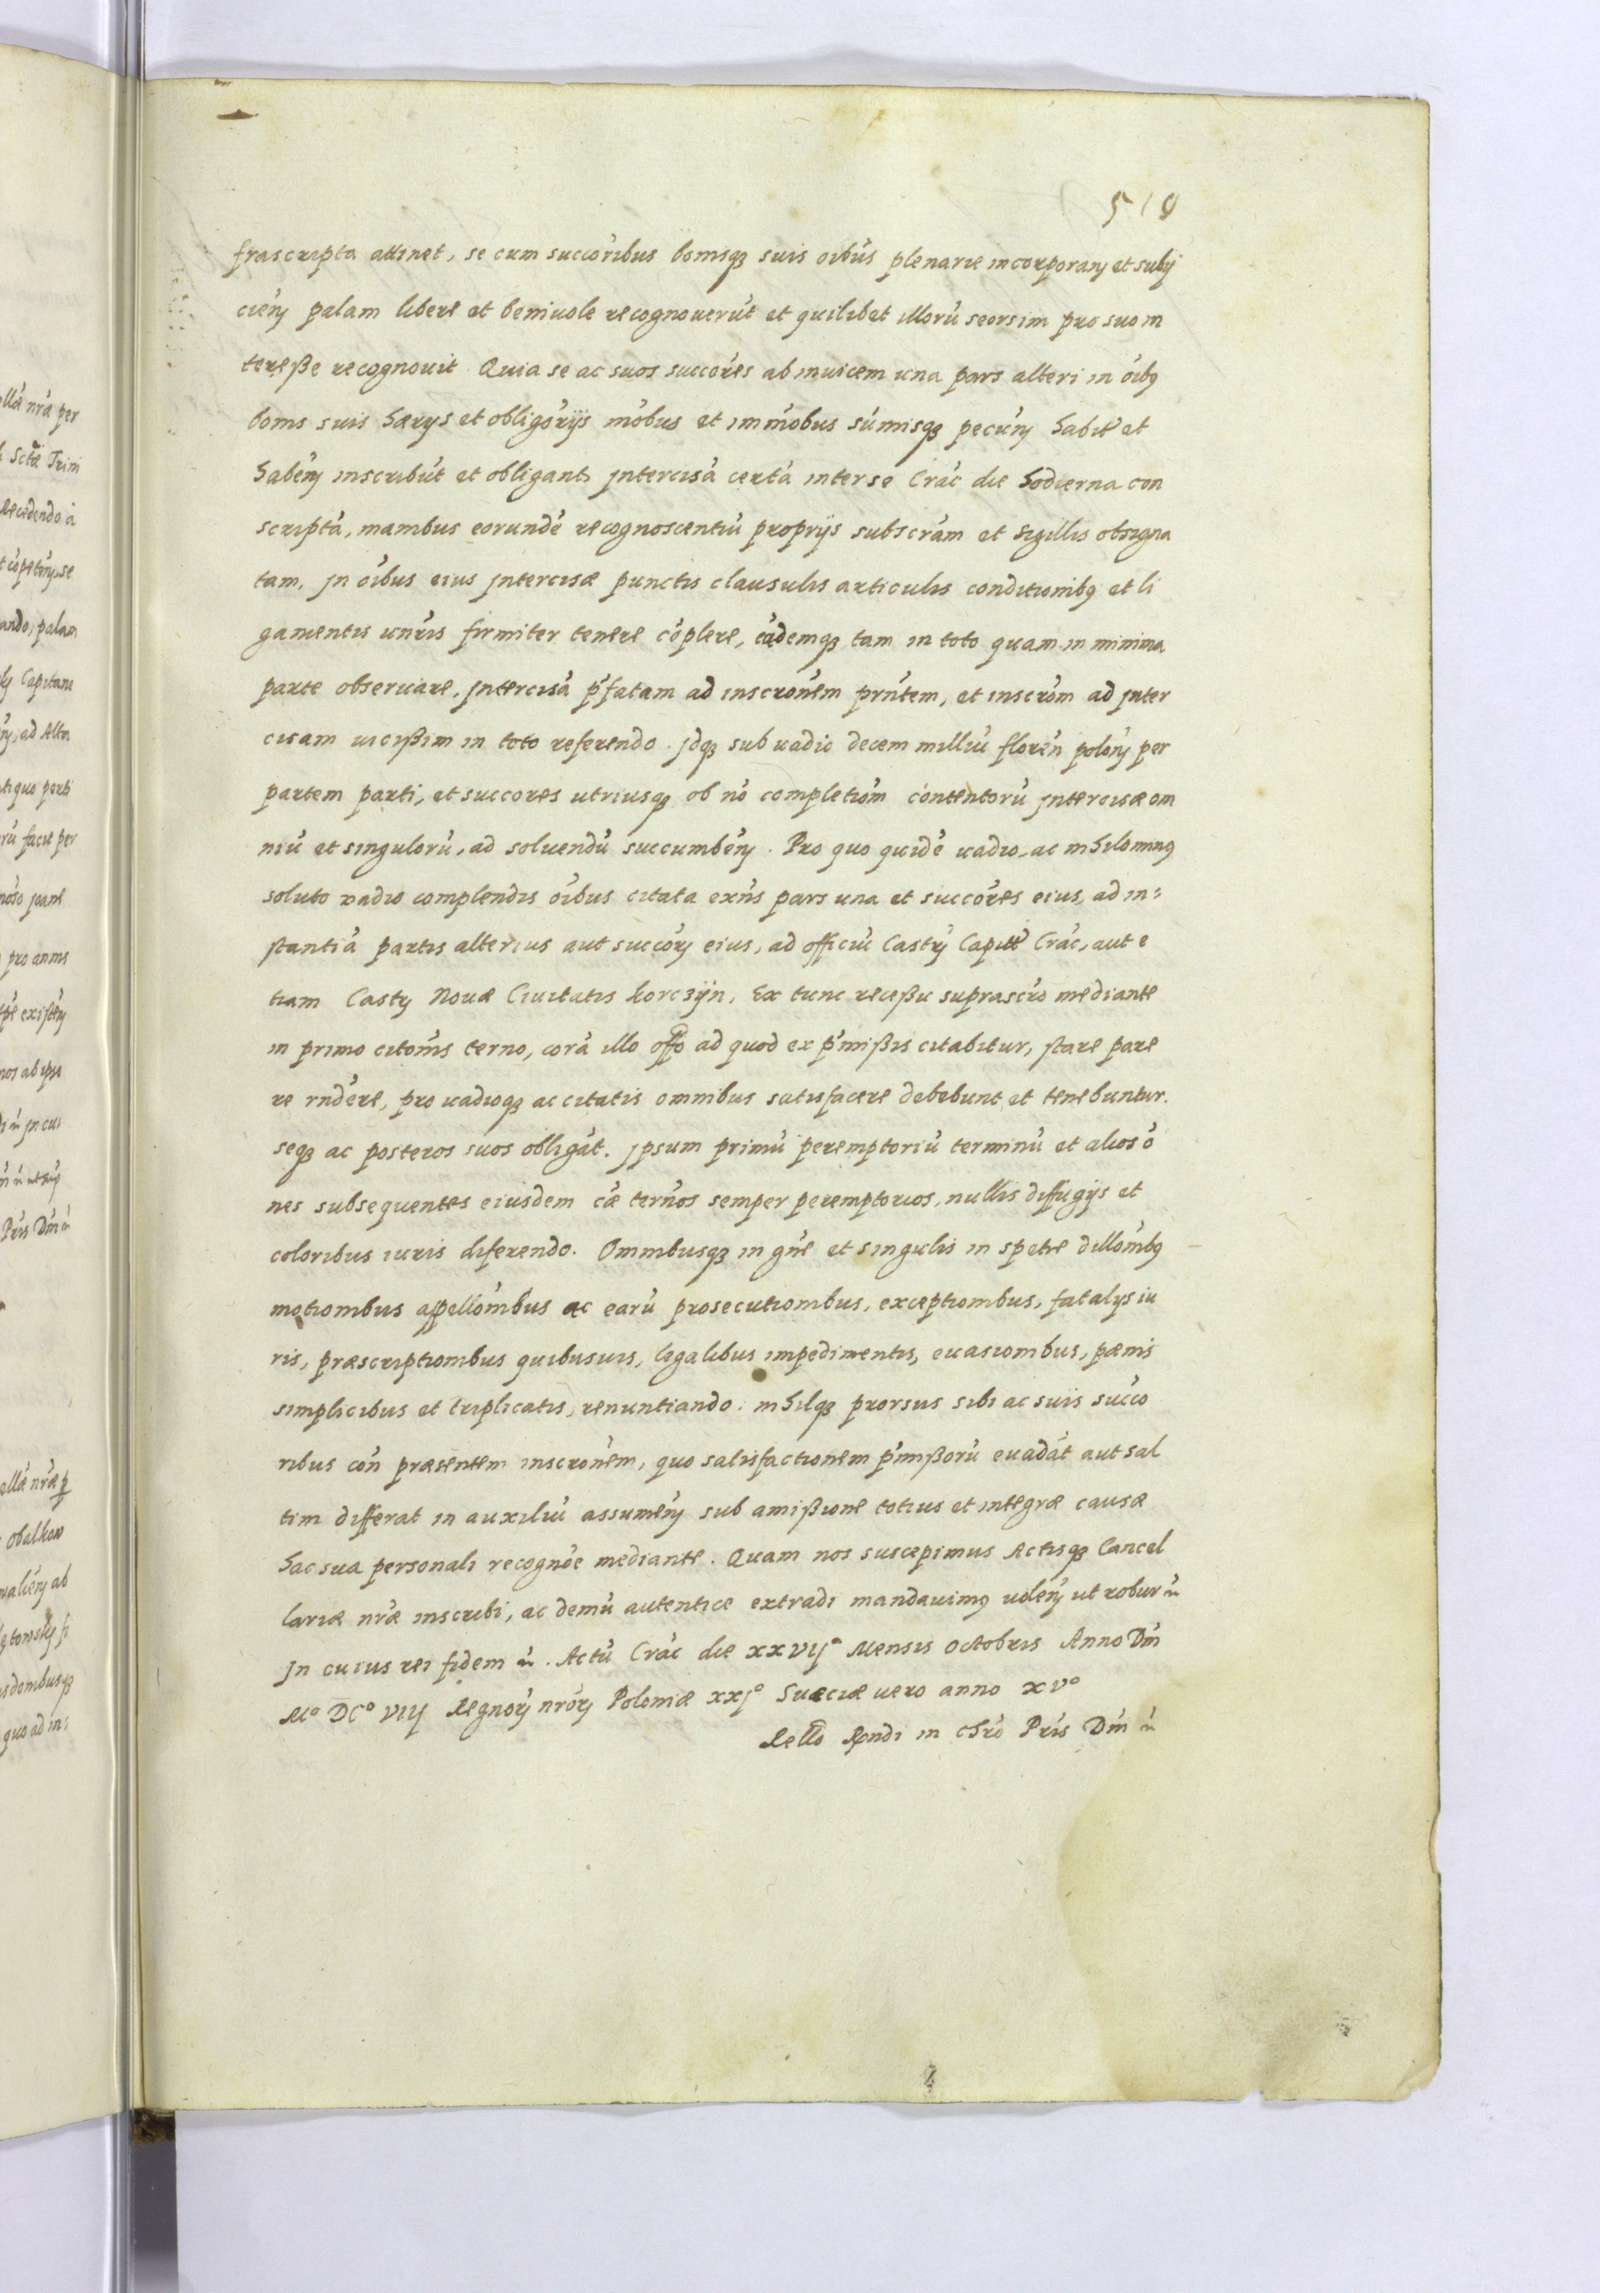 519
frascripta attinet, se cum succoribus bonisq3 suis oibus plenarie incorporañ et subij
cieñ palam libere et beniuole recognouerũt et quilibet illorũ seorsim pro suo in
tereße recognouit. Quia se ac suos succores ab inuicem una pars alteri in oib9
bonis suis haerijs et obligõrijs mõbus et immõbus sũmisq3 pecuñ habit et
habeñ inscribũt et obligant, jntercisã certã inter se Crac die hodierna con
scriptã, manibus eorundẽ recognoscentiũ proprijs subscrãm et sigillis obsigna
tam, jn oibus eius jntercisæ punctis clausulis articulis conditionib9 et li
gamentis unĩris firmiter tenere cõplere, eãdemq3 tam in toto quam in minima
parte obseruare, jntercisã p̃fatam ad inscronem prñtem, et inscrõm ad jnter
cisam uicißim in toto referendo. jdq3 sub uadio decem milliũ floreñ poloñ per
partem parti, et succores utriusq3 ob nõ completiõm contentorũ jntercisæ om
niũ et singulorũ, ad soluendũ succumbeñ. Pro quo quidẽ uadio, ac nihilomin9
soluto vadio complendis oibus citata exñs pars una et succores eius, ad in=
stantiã partis alterius aut succorũ eius, ad officiũ Castrẽ Capitt Crac, aut e
tiam Castrẽ Nouæ Ciuitatis Korczijn, Ex tunc receßu suprascrõ mediante
in primo citõnis terno, corã illo offo ad quod ex p̃mißis citabitur, stare pare
re rñdere, pro uadioq3 ac citatis omnibus satisfacere debebunt et tenebuntur.
seq3 ac posteros suos obligãt. jpsum primũ peremptoriũ terminũ et alios õ
nes subsequentes eiusdem cæ ternos semper peremptorios, nullis diffugijs et
coloribus iuris diferendo. Omnibusq3 in gñe et singulis in spetie dillõnib9
motionibus appellõnibus ac earũ prosecutionibus, exceptionibus, fatalijs iu
ris, præscriptionibus quibusuis, legalibus impedimentis, euasionibus, pænis
simplicibus et triplicatis, renuntiando. nihilq3 prorsus sibi ac suis succo
ribus coñ præsentem inscronẽm, quo satisfactionem p̃mißorũ euadãt aut sal
tim differat in auxiliũ assumeñ sub amißione totius et integræ causæ
hac sua personali recognõe mediante. Quam nos suscepimus Actisq3 Cancel
lariæ nræ inscribi, ac demũ autentice extradi mandauim9 uoleñ ut robur ũ
jn cuius rei fidem ũ. Actũ Crac die XXVIJ° Mensis Octobris Anno Dñi
M° DC° VIIJ Regnorũ nrõrũ Poloniæ XXJ° Sueciæ uero anno XV°
Rello Rndi in Chrõ Pris Dñi ũ